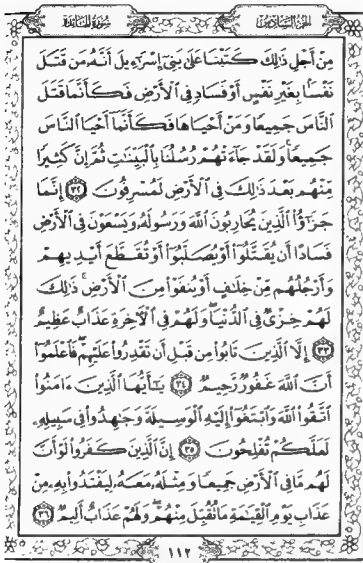 الجزء السادس سورة المائدة
مِنْ أَجْلِ ذَٰلِكَ كَتَبْنَا عَلَىٰ بَنِىٓ إِسْرَٰٓءِيلَ أَنَّهُۥ مَن قَتَلَ
نَفْسًۢا بِغَيْرِ نَفْسٍ أَوْ فَسَادٍ فِى ٱلْأَرْضِ فَكَأَنَّمَا قَتَلَ
ٱلنَّاسَ جَمِيعًا وَمَنْ أَحْيَاهَا فَكَأَنَّمَآ أَحْيَا ٱلنَّاسَ
جَمِيعًا ۚ وَلَقَدْ جَآءَتْهُمْ رُسُلُنَا بِٱلْبَيِّنَٰتِ ثُمَّ إِنَّ كَثِيرًا
مِّنْهُم بَعْدَ ذَٰلِكَ فِى ٱلْأَرْضِ لَمُسْرِفُونَ ٣٢ إِنَّمَا
جَزَٰٓؤُا۟ ٱلَّذِينَ يُحَارِبُونَ ٱللَّهَ وَرَسُولَهُۥ وَيَسْعَوْنَ فِى ٱلْأَرْضِ
فَسَادًا أَن يُقَتَّلُوٓا۟ أَوْ يُصَلَّبُوٓا۟ أَوْ تُقَطَّعَ أَيْدِيهِمْ
وَأَرْجُلُهُم مِّنْ خِلَٰفٍ أَوْ يُنفَوْا۟ مِنَ ٱلْأَرْضِ ۚ ذَٰلِكَ
لَهُمْ خِزْىٌ فِى ٱلدُّنْيَا ۖ وَلَهُمْ فِى ٱلْءَاخِرَةِ عَذَابٌ عَظِيمٌ
٣٣ إِلَّا ٱلَّذِينَ تَابُوا۟ مِن قَبْلِ أَن تَقْدِرُوا۟ عَلَيْهِمْ ۖ فَٱعْلَمُوٓا۟
أَنَّ ٱللَّهَ غَفُورٌ رَّحِيمٌ ٣٤ يَٰٓأَيُّهَا ٱلَّذِينَ ءَامَنُوا۟
ٱتَّقُوا۟ ٱللَّهَ وَٱبْتَغُوٓا۟ إِلَيْهِ ٱلْوَسِيلَةَ وَجَٰهِدُوا۟ فِى سَبِيلِهِۦ
لَعَلَّكُمْ تُفْلِحُونَ ٣٥ إِنَّ ٱلَّذِينَ كَفَرُوا۟ لَوْ أَنَّ
لَهُم مَّا فِى ٱلْأَرْضِ جَمِيعًا وَمِثْلَهُۥ مَعَهُۥ لِيَفْتَدُوا۟ بِهِۦ مِنْ
عَذَابِ يَوْمِ ٱلْقِيَٰمَةِ مَا تُقُبِّلَ مِنْهُمْ ۖ وَلَهُمْ عَذَابٌ أَلِيمٌ ٣٦
١١٣